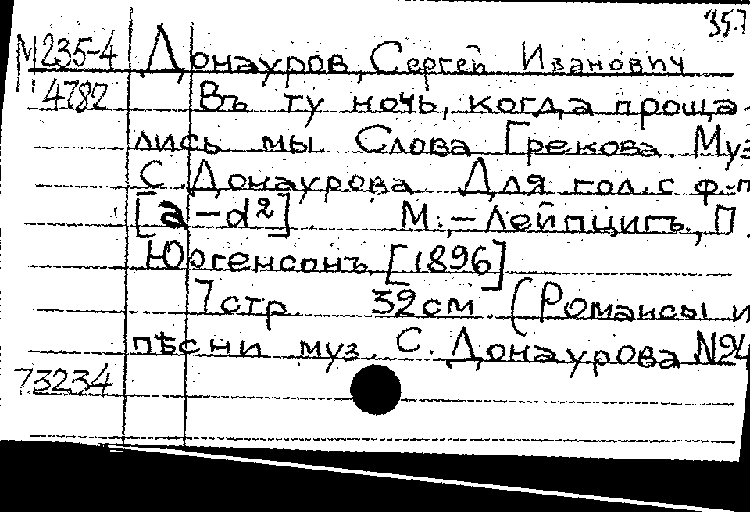 357
М235-4 Донауров, Сергей Иванович
4782 Въ ту ночь, когда проща-
лись мы. Слова Грекова. Муз
С. Донаурова. Для гол. с ф-п
[a-d²]. М.,-Лейпцигъ, П.
Юргенсонъ, [1896]
7 стр. 32 см. (Романсы и
пѣсни муз. С. Донаурова №24
73234